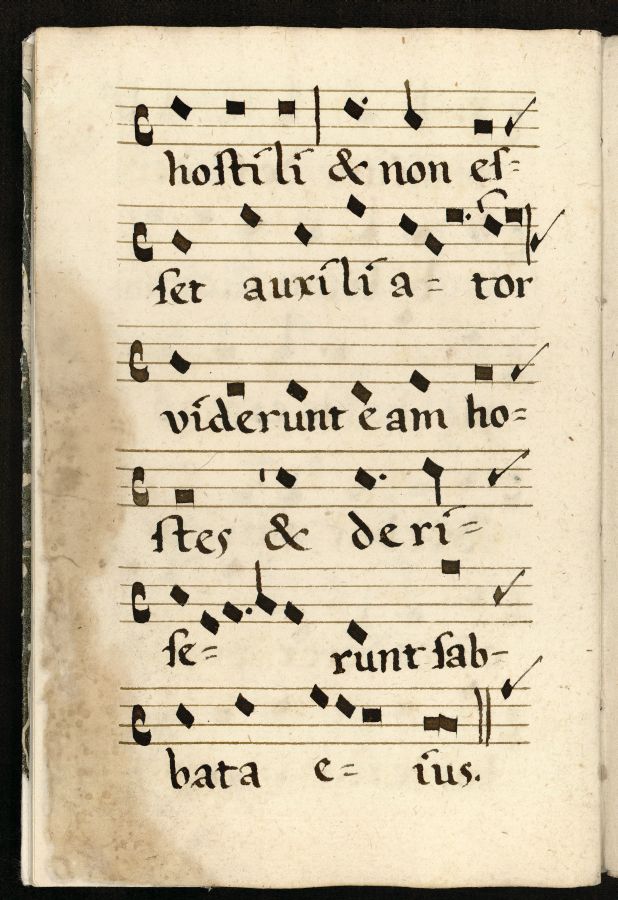 hoſtili & non eſ=
ſet auxilia= tor
viderunt eam ho=
ſtes & deri=
ſe= runt ſab-
bata e= ius.